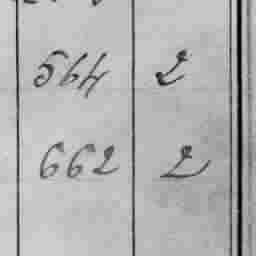 564 2
662 2